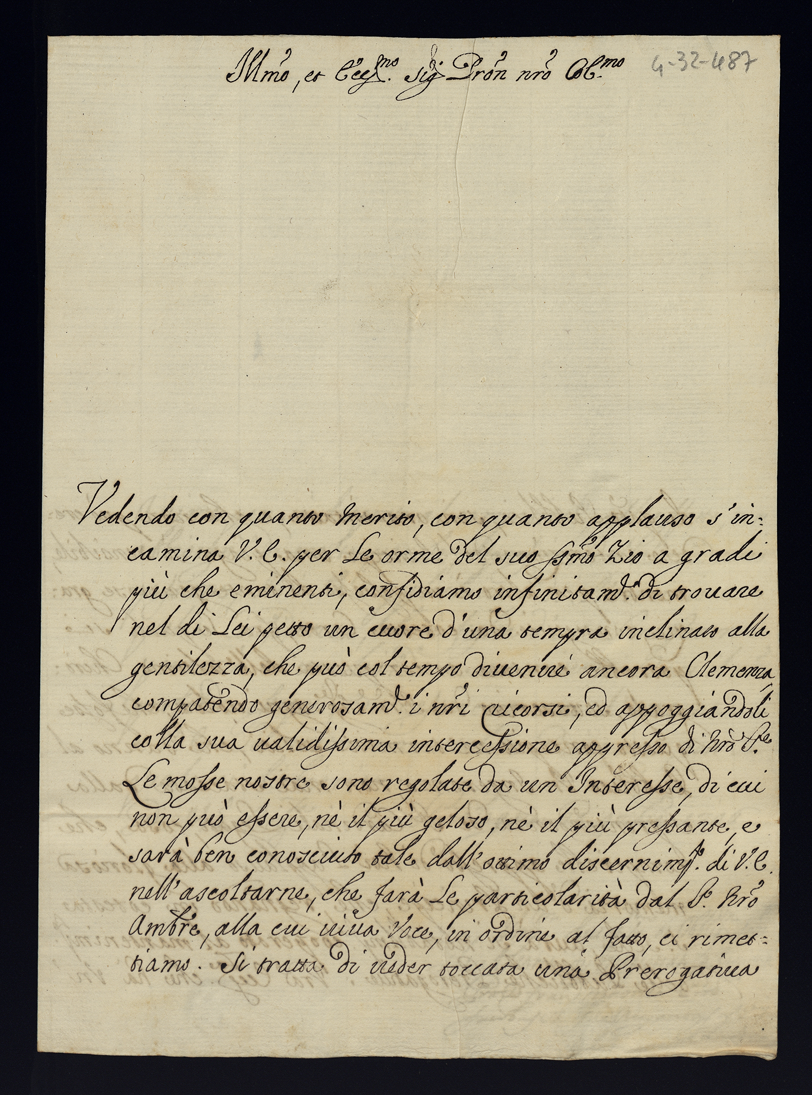 Illmõ, et Ecc.mo Sig.r Prõn nrõ Col.mo
4-32-487
Vedendo con quanto merito, con quanto applauso s'in-
camina V.E. per le orme del suo SSmõ Zio a gradi
più che eminenti, confidiamo infinitam.te di trovare
nel di Lei petto un cuore d'una tempra inclinato alla
gentilezza, che può col tempo divenire ancora Clemenza,
compatendo generosam.te i nr̃i ricorsi, ed appoggiandoli
colla sua validissima intercessione appresso di Nrõ S.re
Le mosse nostre sono regolate da un Interesse, di cui
non può essere, nè il più geloso, nè il più pressante, e
sarà ben conosciuto tale dall'ottimo discernim.to di V.E.
nell'ascoltarne, che farà le particolarità dal S.r Nrõ
Ambr̃e, alla cui viva voce, in ordine al fatto, ci rimet-
tiamo. Si tratta di veder toccata una Prerogativa